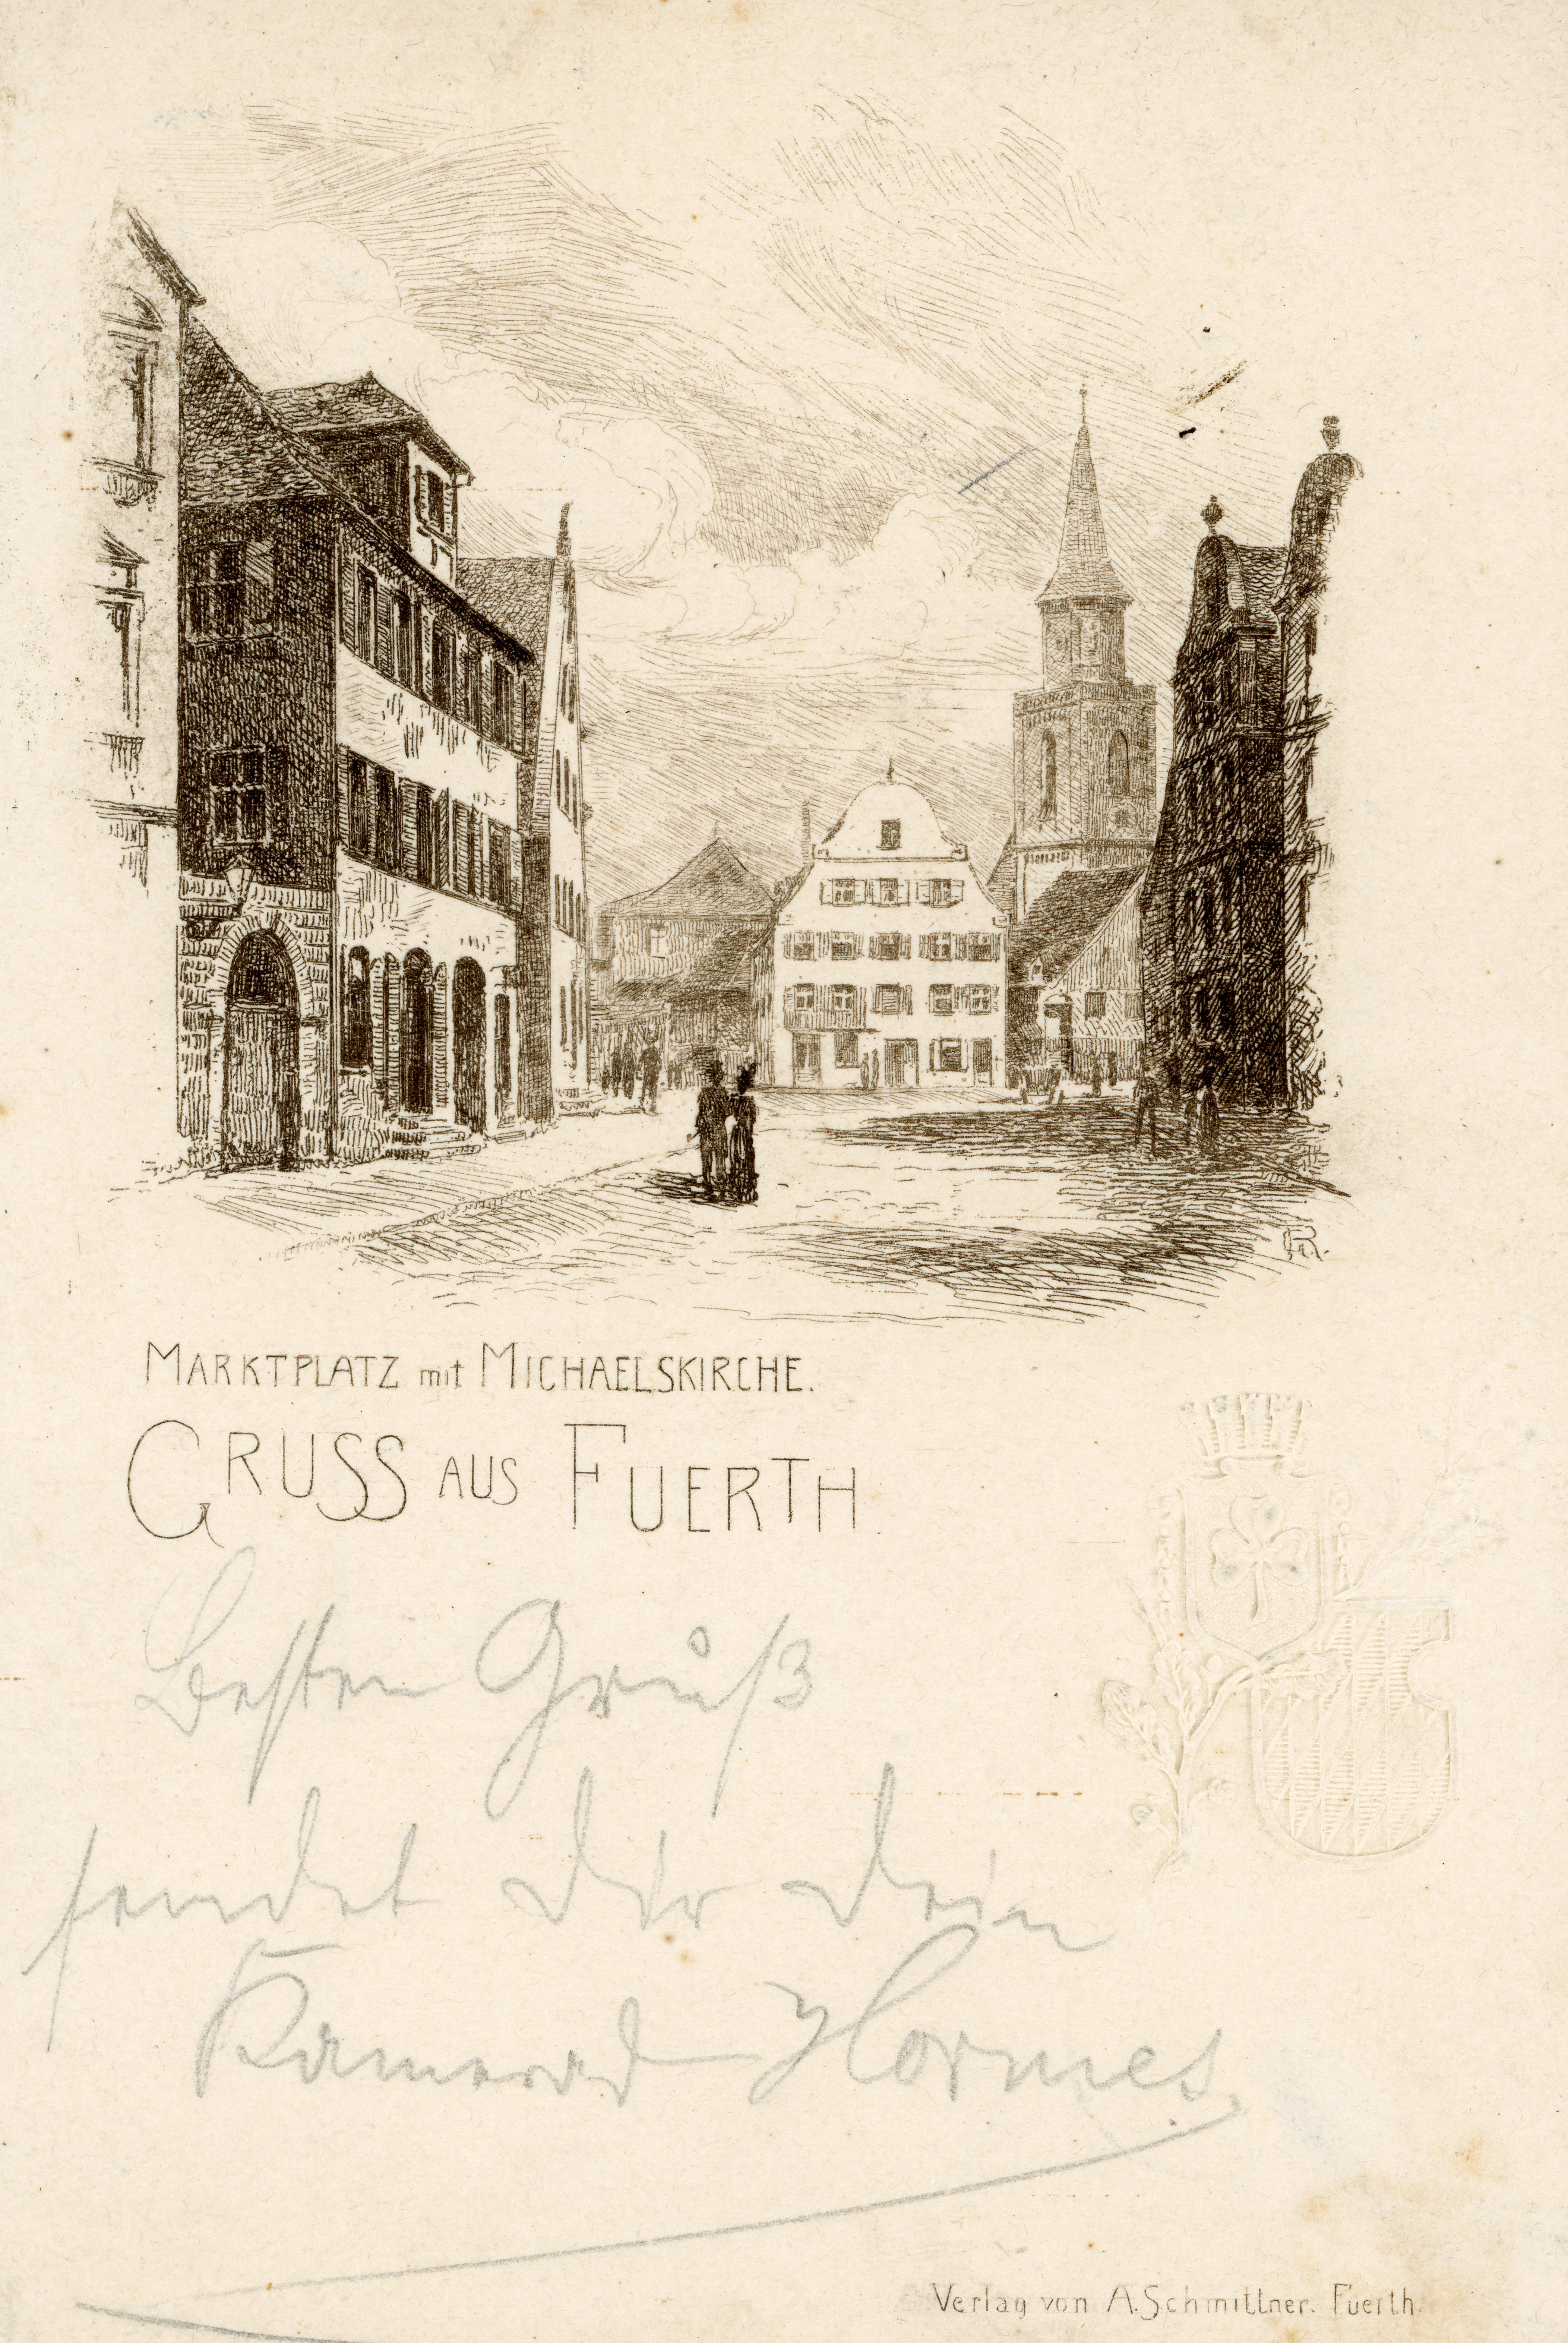 MARKTPLATZ mit MICHAELSKIRCHE.
GRUSS AUS FUERTH.
Besten Gruß
sendet Dir Dein
Kamerad
Verlag von A. Schmittner. Fuerth.